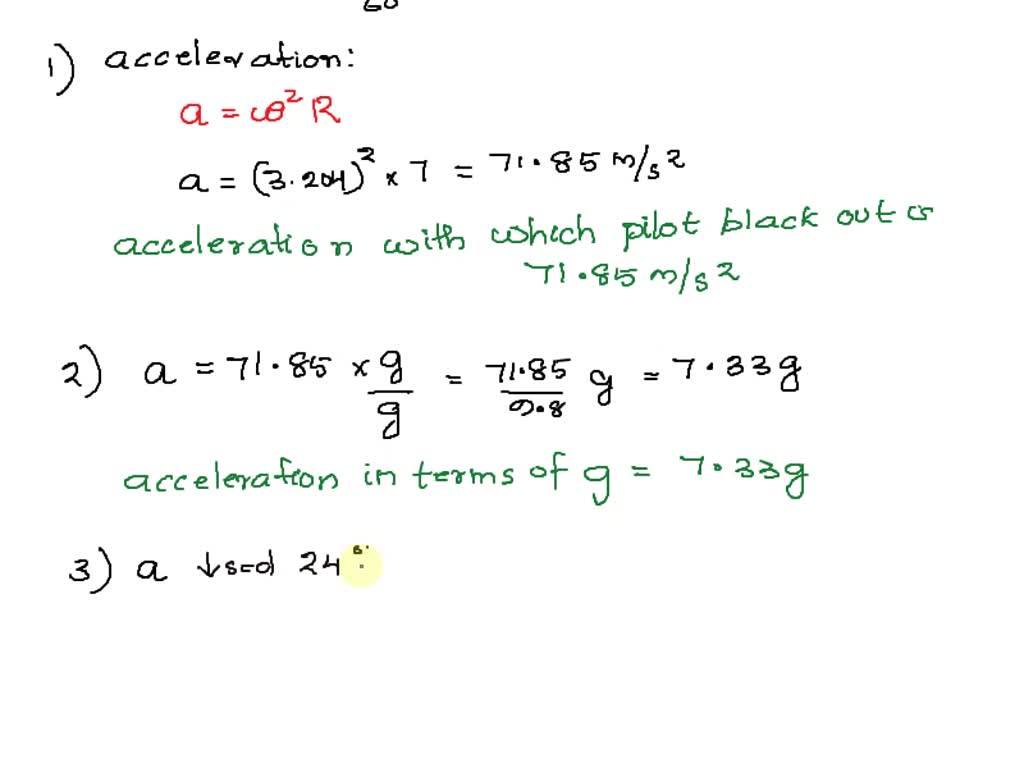 60
1) acceleration:
a = ω² R
a = (3.204)² × 7 = 71.85 m/s²
acceleration with which pilot black out is
71.85 m/s²
2) a = 71.85 × g/g = 71.85/9.8 g = 7.33g
acceleration in terms of g = 7.33g
3) a ↓sed 24